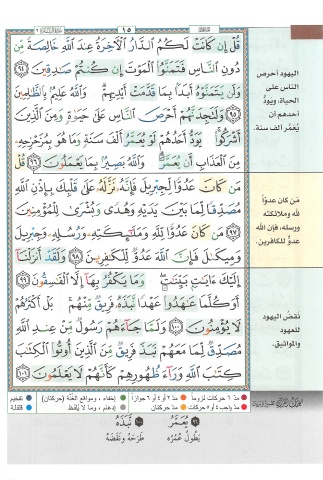 ١٥
قُلْ إِن كَانَتْ لَكُمُ الدَّارُ الْآخِرَةُ عِندَ اللَّهِ خَالِصَةً مِّن
دُونِ النَّاسِ فَتَمَنَّوُا الْمَوْتَ إِن كُنتُمْ صَادِقِينَ ٩٤
وَلَن يَتَمَنَّوْهُ أَبَدًا بِمَا قَدَّمَتْ أَيْدِيهِمْ وَاللَّهُ عَلِيمٌ بِالظَّالِمِينَ
٩٥ وَلَتَجِدَنَّهُمْ أَحْرَصَ النَّاسِ عَلَىٰ حَيَاةٍ وَمِنَ الَّذِينَ
أَشْرَكُوا يَوَدُّ أَحَدُهُمْ لَوْ يُعَمَّرُ أَلْفَ سَنَةٍ وَمَا هُوَ بِمُزَحْزِحِهِ
مِنَ الْعَذَابِ أَن يُعَمَّرَ وَاللَّهُ بَصِيرٌ بِمَا يَعْمَلُونَ ٩٦ قُلْ
مَن كَانَ عَدُوًّا لِّجِبْرِيلَ فَإِنَّهُ نَزَّلَهُ عَلَىٰ قَلْبِكَ بِإِذْنِ اللَّهِ
مُصَدِّقًا لِّمَا بَيْنَ يَدَيْهِ وَهُدًى وَبُشْرَىٰ لِلْمُؤْمِنِينَ
٩٧ مَن كَانَ عَدُوًّا لِّلَّهِ وَمَلَائِكَتِهِ وَرُسُلِهِ وَجِبْرِيلَ
وَمِيكَالَ فَإِنَّ اللَّهَ عَدُوٌّ لِّلْكَافِرِينَ ٩٨ وَلَقَدْ أَنزَلْنَا
إِلَيْكَ آيَاتٍ بَيِّنَاتٍ وَمَا يَكْفُرُ بِهَا إِلَّا الْفَاسِقُونَ ٩٩
أَوَكُلَّمَا عَاهَدُوا عَهْدًا نَّبَذَهُ فَرِيقٌ مِّنْهُم بَلْ أَكْثَرُهُمْ
لَا يُؤْمِنُونَ ١٠٠ وَلَمَّا جَاءَهُمْ رَسُولٌ مِّنْ عِندِ اللَّهِ
مُصَدِّقٌ لِّمَا مَعَهُمْ نَبَذَ فَرِيقٌ مِّنَ الَّذِينَ أُوتُوا الْكِتَابَ
كِتَابَ اللَّهِ وَرَاءَ ظُهُورِهِمْ كَأَنَّهُمْ لَا يَعْلَمُونَ ١٠١
اليهود أحرص
الناس على
الحياة، ويودُّ
أحدهم أن
يُعَمَّر ألف سنة.
مَن كان عدوًا
لله وملائكته
ورسله، فإن الله
عدوٌّ للكافرين.
نقضُ اليهود
للعهود
والمواثيق.
مدّ ٦ حركات لزوماً مدّ ٢ أو ٤ أو ٦ جوازاً إخفاء، ومواقع الغُنَّة (حركتان) تفخيم
مدّ واجب ٤ أو ٥ حركات مدّ حركتان إدغام، وما لا يُلفَظ قلقلة
يُعَمَّرُ نَّبَذَهُ
يَطُولُ عُمُرُه طَرَحَهُ وَنَقَضَهُ